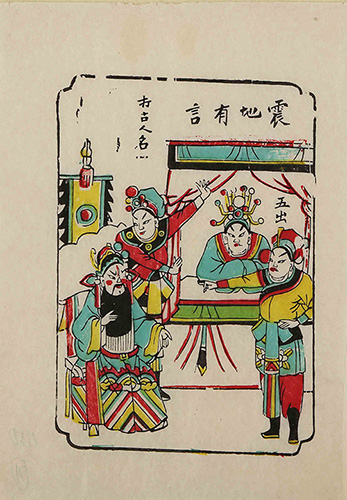 震地有言
五出
打古人名